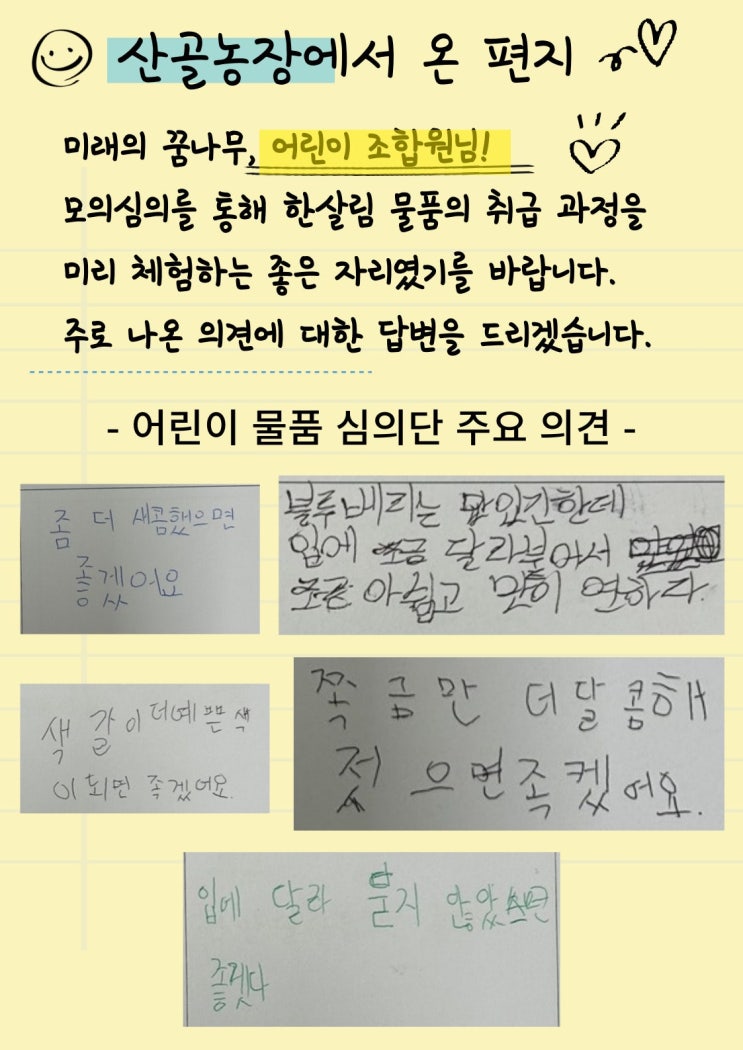 산골농장에서 온 편지
미래의 꿈나무, 어린이 조합원님!
모의심의를 통해 한살림 물품의 취급 과정을
미리 체험하는 좋은 자리였기를 바랍니다.
주로 나온 의견에 대한 답변을 드리겠습니다.
- 어린이 물품 심의단 주요 의견 -
좀 더 새콤했으면
좋겠어요
블루베리는 맛있긴한데
입에 조금 달라부어서
조금 아쉽고 맛이 연하다.
색갈이 더예쁜색
이 되면 좋겠어요.
쪽금만 더달콤해
젔으면좋켔어요.
입에 달라 묻지 않았스면
좋겠다